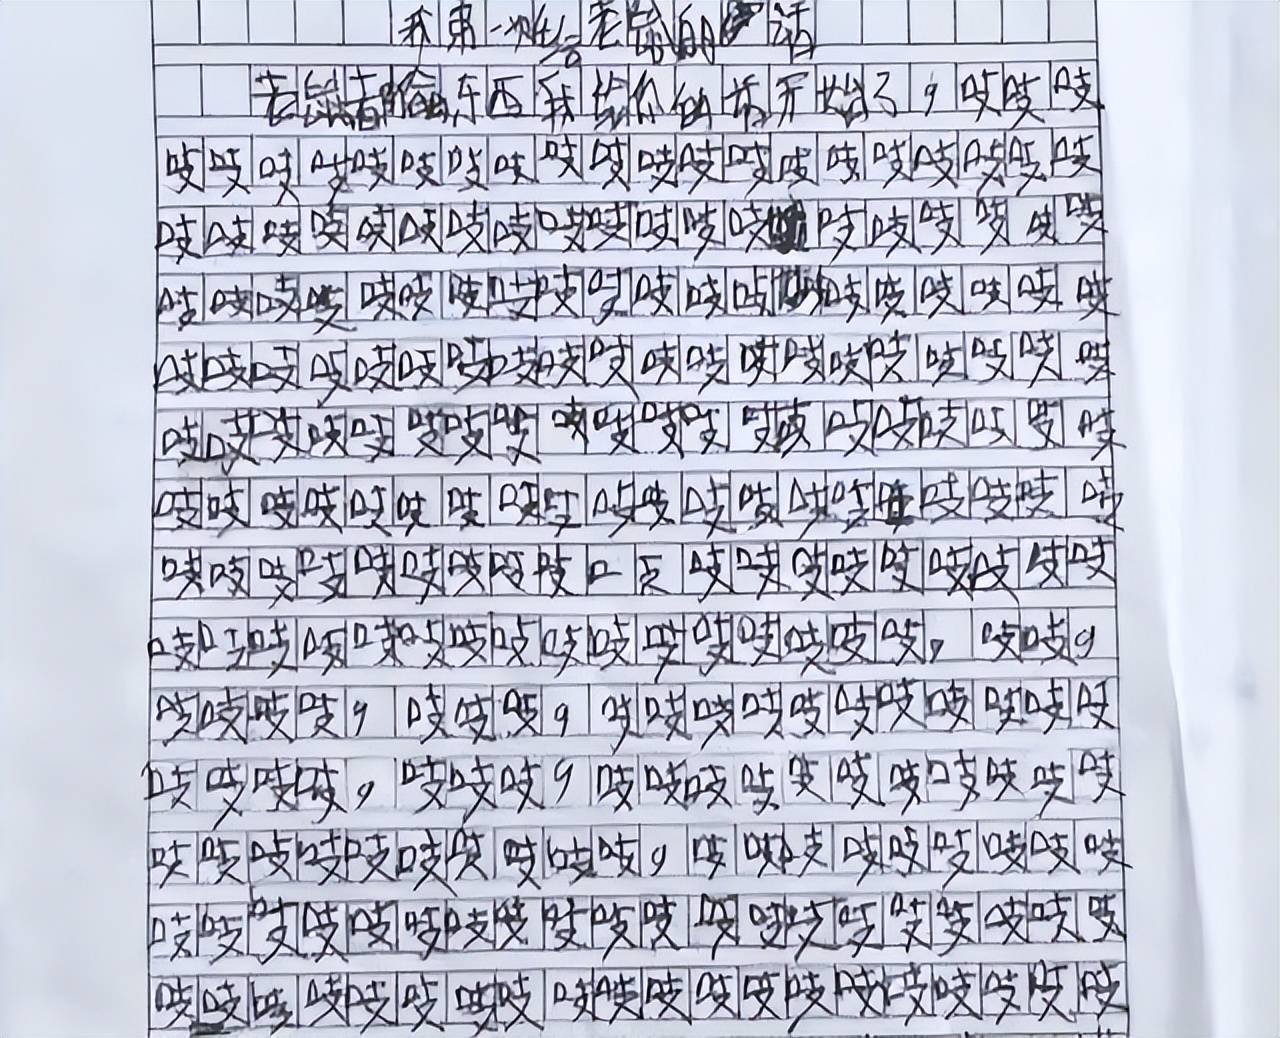 我第一次给老鼠的话
老鼠偷东西我给你们开始了，吱吱吱
吱吱吱吱吱吱吱吱吱吱吱吱吱吱吱吱吱吱吱吱
吱吱吱吱吱吱吱吱吱吱吱吱吱吱吱吱吱吱吱
吱吱吱吱吱吱吱吱吱吱吱吱吱吱吱吱吱吱吱
吱吱吱吱吱吱吱吱吱吱吱吱吱吱吱吱吱吱吱吱
吱吱吱吱吱吱吱吱吱吱吱吱吱吱吱吱吱吱吱吱
吱吱吱吱吱吱吱吱吱吱吱吱吱吱吱吱吱吱吱
吱吱吱吱吱吱吱吱吱口支吱吱吱吱吱吱吱吱吱
吱吱吱吱吱吱吱吱吱吱吱吱吱吱吱吱，吱吱，
吱吱吱吱，吱吱吱，吱吱吱吱吱吱吱吱吱吱吱
吱吱吱吱，吱吱吱，吱吱吱吱吱吱吱吱吱吱吱
吱吱吱吱吱吱吱吱吱吱，吱吱吱吱吱吱吱吱吱
吱吱吱吱吱吱吱吱吱吱吱吱吱吱吱吱吱吱吱吱
吱吱吱吱吱吱吱吱吱吱吱吱吱吱吱吱吱吱吱吱